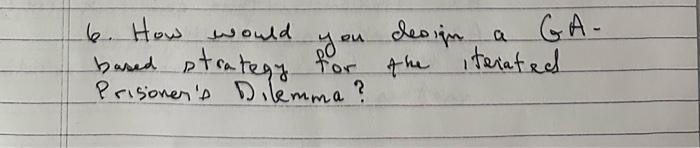 6. How would you design a GA-
based strategy for the iterated
Prisoner's Dilemma?